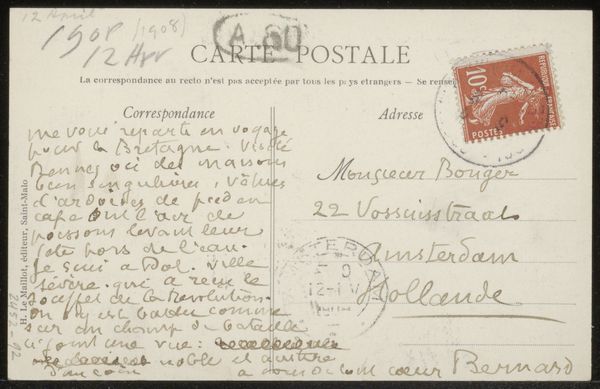 12 April
1908 (1908)
12 Apr
A. 60
CARTE POSTALE
La correspondance au recto n'est pas acceptée par tous les pays étrangers — Se
Correspondance
Adresse
REPUBLIQUE
10c
POSTES
me voici reparti en voyage
pour la Bretagne. Visité
Rennes où des maisons
bien singulières, vêtues
d'ardoises de pied en
cape ont l'air de
poissons levant leur
tête hors de l'eau.
Je suis à Dol. Ville
sévère qui a reçu le
souffle de la Revolution.
on s'y est battu comme
sur un champ de bataille
une vue:
noble et austère
d'un coin
à vous de tout cœur Bernard
Monsieur Bonger
22 Vossiusstraat
Amsterdam
Hollande
AMSTERDAM
12-1 V
H. Le Maillot, éditeur, Saint-Malo